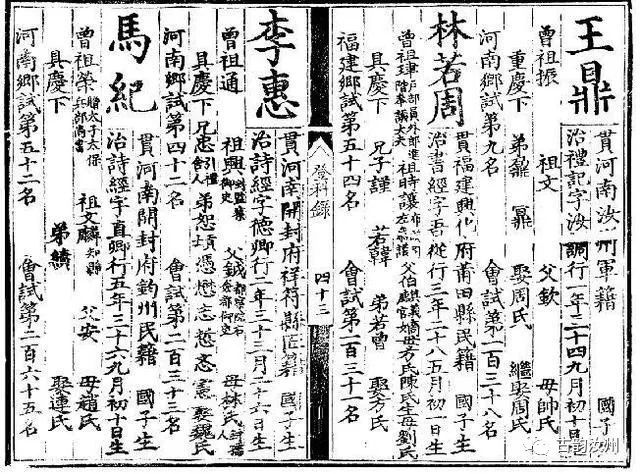 王鼎
貫河南汝州軍籍 國子
治禮記字汝調行一年三十四九月初十日
曾祖振 祖文 父欽 母帥氏
重慶下 弟鼐 鼏 娶周氏 繼娶周氏
河南鄉試第九名 會試第一百三十八名
林若周
貫福建興化府莆田縣民籍 國子生
治書經字吾從行三年二十八五月初一日生
曾祖 祖時讓 父伯 嫡母方氏陳氏生母劉氏
具慶下 兄子謹 若韓 弟若魯 娶方氏
福建鄉試第五十四名 會試第一百三十一名
登科錄
四十三
李惠
貫河南開封府祥符縣匠籍 國子生
治詩經字德卿行一年三十三月二十六日生
曾祖通 祖興 父鉞 母林氏
具慶下 兄忠 弟恕 憑 懋 志 憲 娶魏氏
河南鄉試第四十二名 會試第二百三十三名
馬紀
貫河南開封府鈞州民籍 國子生
治詩經字直卿行五年三十六九月初十日生
曾祖榮贈太子太保兵部尚書 祖文麟知縣 父安 母趙氏
具慶下 弟 娶連氏
河南鄉試第五十二名 會試第二百六十五名
古韻汝州